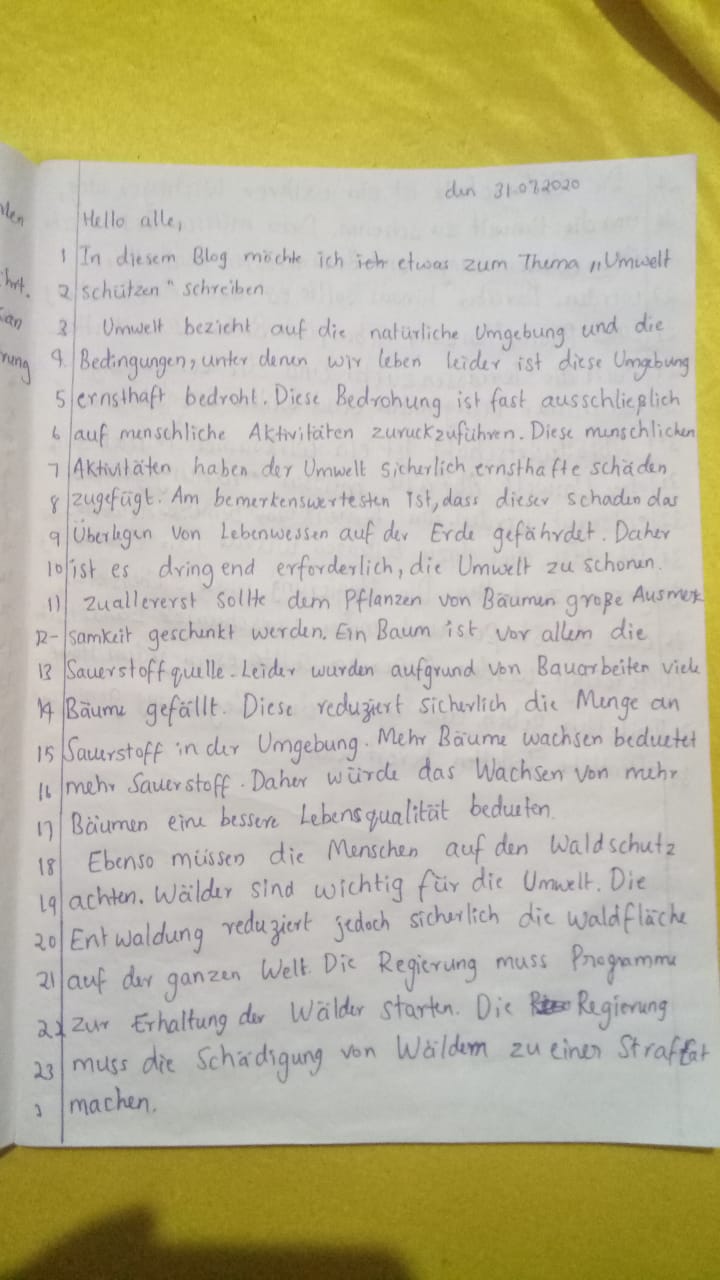 den 31.07.2020
Hello alle,
1 In diesem Blog möchte ich ich etwas zum Thema „Umwelt
2 schützen" schreiben
3 Umwelt bezieht auf die natürliche Umgebung und die
4. Bedingungen, unter denen wir leben leider ist diese Umgebung
5 ernsthaft bedroht. Diese Bedrohung ist fast ausschließlich
6 auf menschliche Aktivitäten zuruckzuführen. Diese menschlichen
7 Aktivitäten haben der Umwelt sicherlich ernsthafte schäden
8 zugefügt. Am bemerkenswertesten ist, dass dieser schaden das
9 Überlegen von Lebenwessen auf der Erde gefährdet. Daher
10 ist es dringend erforderlich, die Umwelt zu schonen.
11 Zuallererst sollte dem Pflanzen von Bäumen große Ausmerk
12- samkeit geschenkt werden. Ein Baum ist vor allem die
13 Sauerstoffquelle. Leider wurden aufgrund von Bauarbeiten viele
14 Bäume gefällt. Diese reduziert sicherlich die Menge an
15 Sauerstoff in der Umgebung. Mehr Bäume wachsen beduetet
16 mehr Sauerstoff. Daher würde das Wachsen von mehr
17 Bäumen eine bessere Lebensqualität bedueten.
18 Ebenso müssen die Menschen auf den Waldschutz
19 achten. Wälder sind wichtig für die Umwelt. Die
20 Entwaldung reduziert jedoch sicherlich die waldfläche
21 auf der ganzen Welt. Die Regierung muss Programme
22 zur Erhaltung der Wälder starten. Die Regierung
23 muss die Schädigung von Wäldern zu einer Straftat
machen.
rlen
ührt.
kan
rung